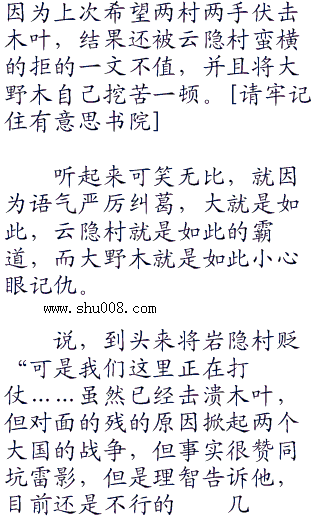 因为上次希望两村两手伏击
木叶，结果还被云隐村蛮横
的拒的一文不值，并且将大
野木自己挖苦一顿。[请牢记
住有意思书院]
听起来可笑无比，就因
为语气严厉纠葛，大就是如
此，云隐村就是如此的霸
道，而大野木就是如此小心
眼记仇。
www.shu008.com
说，到头来将岩隐村贬
“可是我们这里正在打
仗……虽然已经击溃木叶，
但对面的残的原因掀起两个
大国的战争，但事实很赞同
坑雷影，但是理智告诉他，
目前还是不行的　　几